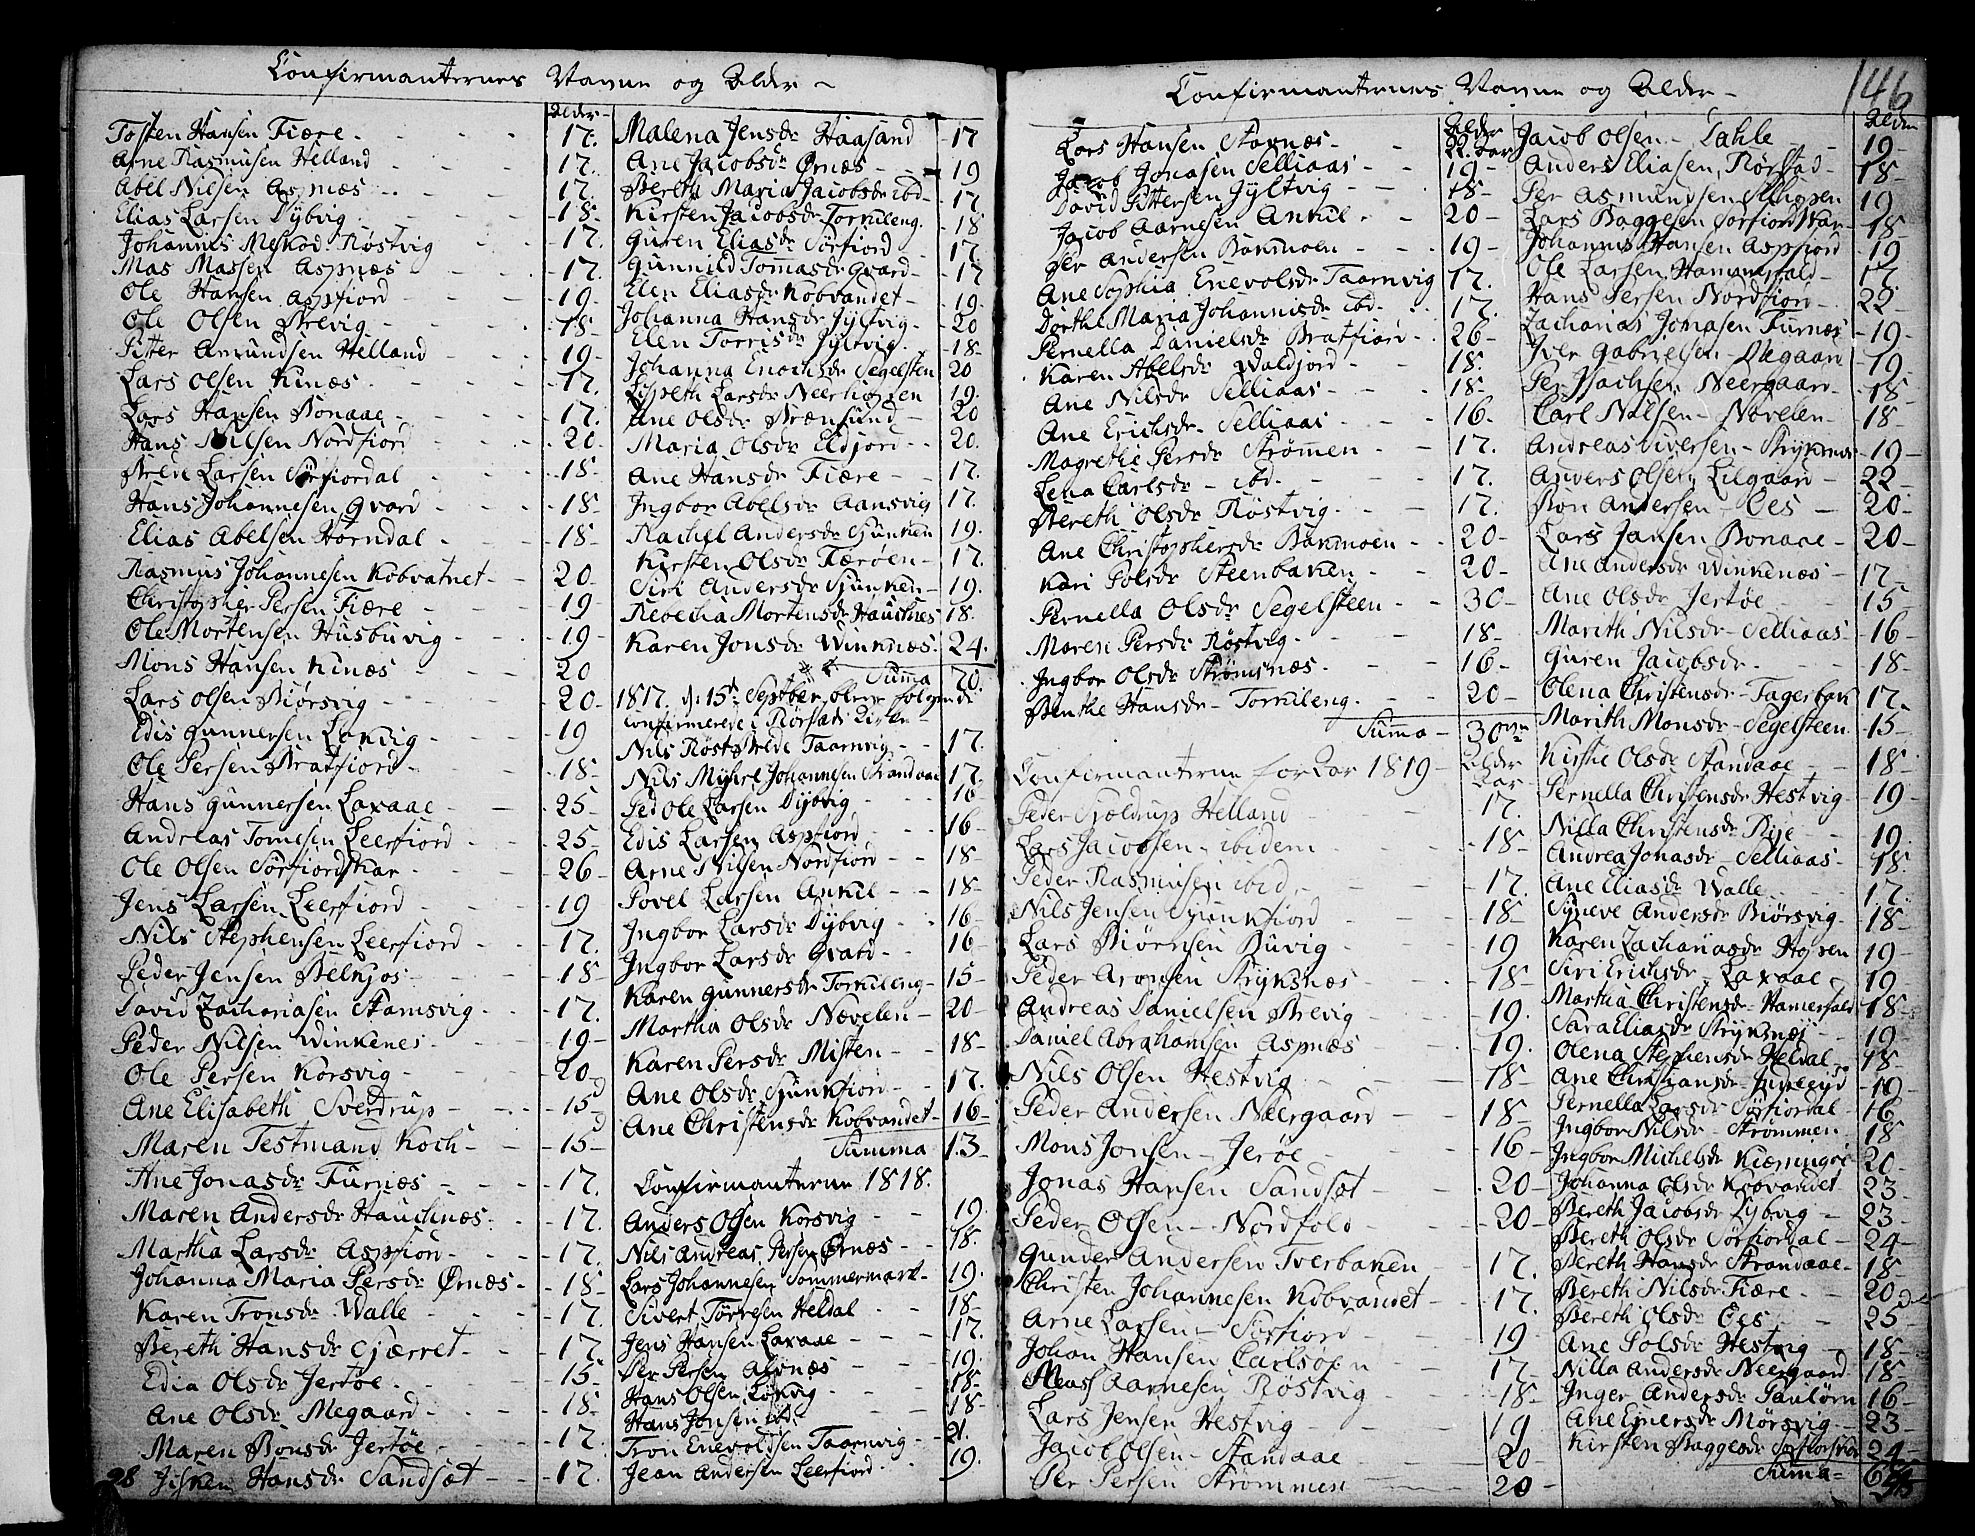 Confirmanternes Navne og Alder
Alder
Tosten Hansen Fiære 17.
Arne Rasmusen Helland 17.
Abel Nilsen Aspnæs 17.
Elias Larsen Dybvig 18
Johannis Røstvig 17.
Mas Massen Aspnæs 17.
Ole Hansen Aspfiord 19
Ole Olsen Brevig 18
Pitter Amundsen Helland 19
Lars Olsen Kinæs 17.
Lars Hansen Bonaae 17.
Hans Nilsen Nordfiord 20
Larsen Sørfiordal 18
Hans Johannesen Qvard 18
Elias Abelsen Horndal 18
Rasmus Johannesen Kobvatnet 20
Christopher Persen Fiære 19
Ole Mortensen Husbuvig 19
Mons Hansen Kinæs 20
Lars Olsen Biørsvig 20
Edis Gunnersen Laxvig 19
Ole Persen Bratfiord 18
Hans Gunnersen Laxaae 25
Andreas Leerfiord 25
Ole Olsen Sørfiordskar 26
Jens Larsen Leerfiord 19
Nils Stephensen Leerfiord 17.
Peder Jensen 18
David Zachariasen Stamsvig 17.
Peder Nilsen Winkenes 19
Ole Persen Korsvig 20
Ane Elisabeth Sverdrup 15
Maren Testmand Koch 15
Ane Jonasdr Furnæs 17.
Maren Andersdr Hauchnæs 17.
Martha Larsdr Aspfior 17.
Johanna Maria Persdr Ørnæs 18
Karen Tronsdr Walle 17.
Bereth Hansdr Gjærret 17.
Edia Olsdr Jertøe 15
Ane Olsdr Megaard 18
Maren Bonsdr Jertøe 17.
28 Hansdr Sandsøt 17.
Malena Jensdr Haasand 17
Ane Jacobsdr Ørnæs 19
Beret Maria Jacobsdr ibd 17
Kirsten Jacobsdr Torkileng. 18
Guren Eliasdr Sørfiord 17.
Gunnild Tomasdr Qvard 17
Elen Eliasdr Kobvandet 19.
Johanna Hansdr Jyltvig 20
Elen Torrisdr Jyltvig 18
Johanna Enochsdr Segelsten 20
Lispeth Larsdr 19.
Ane Olsdr Brænsund 20
Maria Olsdr Eldjord 20.
Ane Hansdr Fiære 17.
Ingbor Abelsdr Aansvig 17.
Rachel Andersdr Sjunken 19.
Kirsten Olsdr Færøen 17.
Siri Andersdr Sjunken 19.
Rebecha Mortensdr Hauchnes 18.
Karen Jonsdr Winknæs. 24.
Summa 70.
1817. d: 15de Septber blev følgende
confirmerede i Rørstads Kirke
Nils Røst Taarnvig 17.
Nils Myhre Johannesen Strandaae 17.
Ped Ole Larsen Dybvig 18
Edis Larsen Aspfiord 16
Arne Nilsen Nordfiord 18
Povel Larsen Ankil 18
Ingbor Larsdr Dybvig 16
Ingbor Larsdr 16
Karen Gunnersdr Torkileng 15
Martha Olsdr Nævelen 20
Karen Persdr Misten 18
Ane Olsdr Sjunkfiord 17.
Ane Christensdr Kobvandet 16
Summa 13
Confirmanterne 1818.
Anders Olsen Korsvig 19
Nils Andreas Persen Ørnæs 18.
Lars Johannesen Sommermark 19.
Sivert Torresen Heldal 18
Jens Hansen Laxaae 17.
Per Persen 19.
Hans Olsen Laxvig 18
Hans Jonsen ib. 18
Tron Enevoldsen Taarnvig 21.
Jean Andersen Leerfiord 19.
Confirmanternes Navne og Alder
146
Alder
Lars Hansen Støvnæs 22. Aar
Jacob Jonasen Selliaas 19
David Pittersen Jyltvig 18
Jacob Aarnesen Ankil 20
Per Andersen Bakmoen 19
Ane Sophia Enevolsdr Taarnvig 17.
Dorthe Maria Johannisdr ibd 17.
Pernella Danielsdr Bratfiord 26
Karen Abelsdr Waldjord 18.
Ane Nilsdr Selliaas 18
Ane Erichsdr Selliaas 16.
Magrethe Persdr Strømen 17.
Lena Carlsdr ibd. 17.
Bereth Olsdr Røstvig 17.
Ane Christophersdr Bakmoen 20
Kari Polsdr Steenbaken 20
Pernella Olsdr Segelsteen 30
Maren Persdr Røstvig 18
Ingbor Olsdr Strømsnæs 16
Benthe Hansdr Torkileng 20
Summa 30
Confirmanterne for Aar 1819 Alder
Aar
Peder Helland 17.
Lars Jacobsen ibidem 18
Peder Rasmusen ibid. 17.
Nils Jensen Sjunkfiord 18
Lars Biørnsen Buvig 19
Peder Aronsen Stryksnæs 18
Andreas Danielsen Brevig 19.
Daniel Abrahamsen Aspnæs 19.
Nils Olsen Hestvig 18
Peder Andersen Neergaard 18
Mons Jonsen Jerøe 16
Jonas Hansen Sandsøt 20
Peder Olsen Nordfold 20
Gunder Andersen Tverbaken 17.
Christen Johannesen Kobvandet 17.
Arne Larsen Sørfiord 19
Johan Hansen Carlsøen 17
Aarnesen Røstvig 18
Lars Jensen Hestvig 19
Jacob Olsen Standaae 20
Per Persen Strømmen 20
Alder
Jacob Olsen Dahle 19
Anders Eliasen Rørstad 18
Per Asmundsen 19
Lars Baggesen Sørfiordskar 18
Johannis Hansen Aspfiord 19
Ole Larsen Hammerfald 17.
Hans Persen Nordfiord 22
Zacharias Jonasen Furnæs 19
Iver Gabrielsen Megaard 19
Per Isachsen Neergaard 18
Carl Nilsen Nevelen 18
Andreas Siversen Stryksnæs 19
Anders Olsen Lilgaard 22
Andersen Oes 20
Lars Jansen Bonaae 20
Ane Andersdr Winkenæs 17
Ane Olsdr Jertøe 15
Marith Nilsdr Selliaas 16
Guren Jacobsdr 18
Olena Christensdr Fagerbak 17.
Marith Monsdr Segelsteen 15
Kirstie Olsdr Standaae 18
Pernella Christensdr Hestvig 19
Nilla Christensdr Rije 19
Andrea Jonasdr Selliaas 18.
Ane Eliasdr Walle 17.
Syneve Andersdr Biørsvig 18
Karen Zachariasdr Hopen 19
Siri Erichsdr Laxaae 19
Martha Christensdr Hamerfald 18
Sara Eliasdr Stryksnæs 19
Olena Stephensdr Heldal 18
Ane Christiansdr 19
Pernella Larsdr Sørfiordal 16
Ingbor Nilsdr Strømmen 18
Ingbor Michelsdr 20
Johanna Olsdr Kobvandet 23
Bereth Jacobsdr Dybvig 23
Bereth Olsdr Sørfiordal 24
Bereth Hansdr Strandaae 18
Bereth Nilsdr Fiære 20
Bereth Olsdr Oes 25
Ane Polsdr Hestvig 18
Nilla Andersdr Neergaard 18
Inger Andersdr 16
Ane Ejnersdr Mørsvig 23
Kirsten Baggesdr 24
Suma